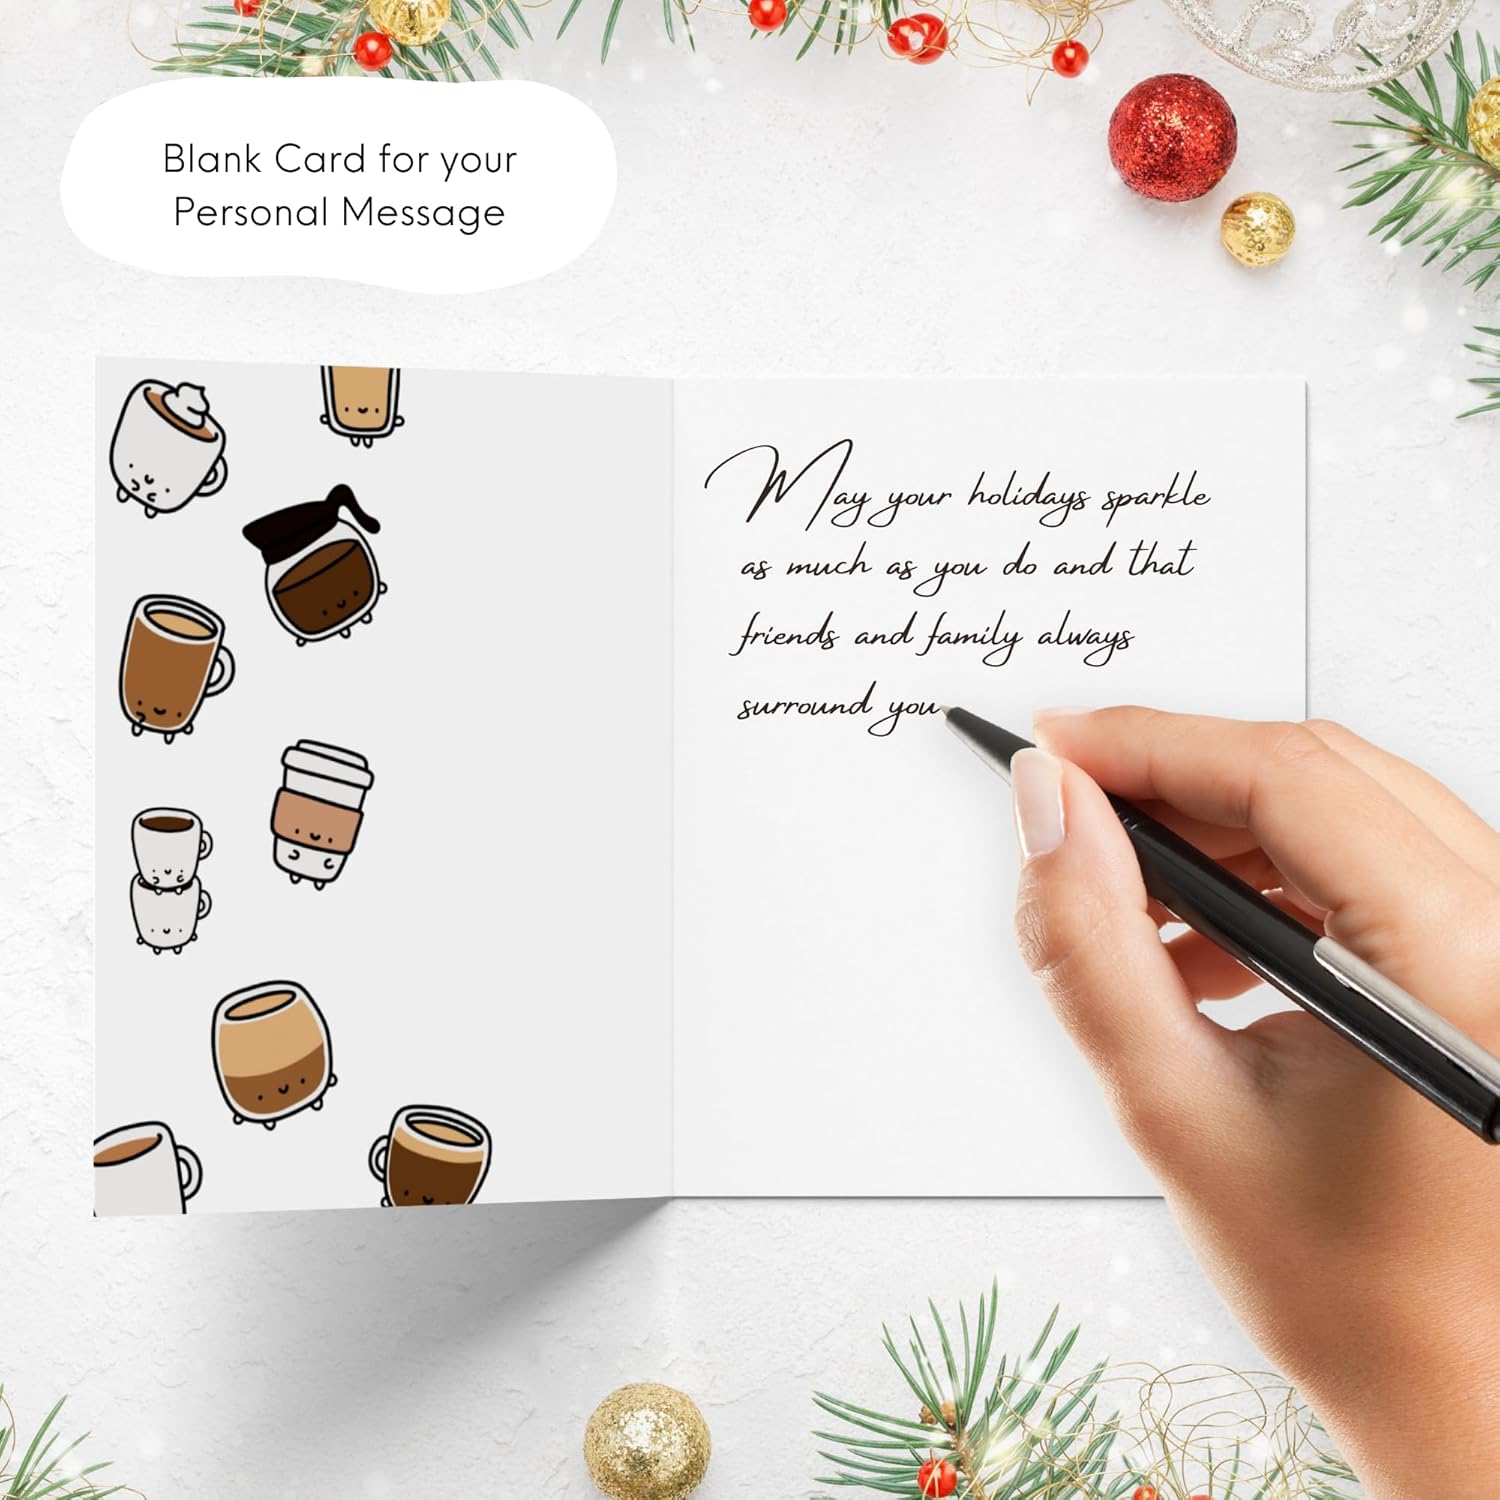 Blank Card for your
Personal Message
May your holidays sparkle
as much as you do and that
friends and family always
surround you